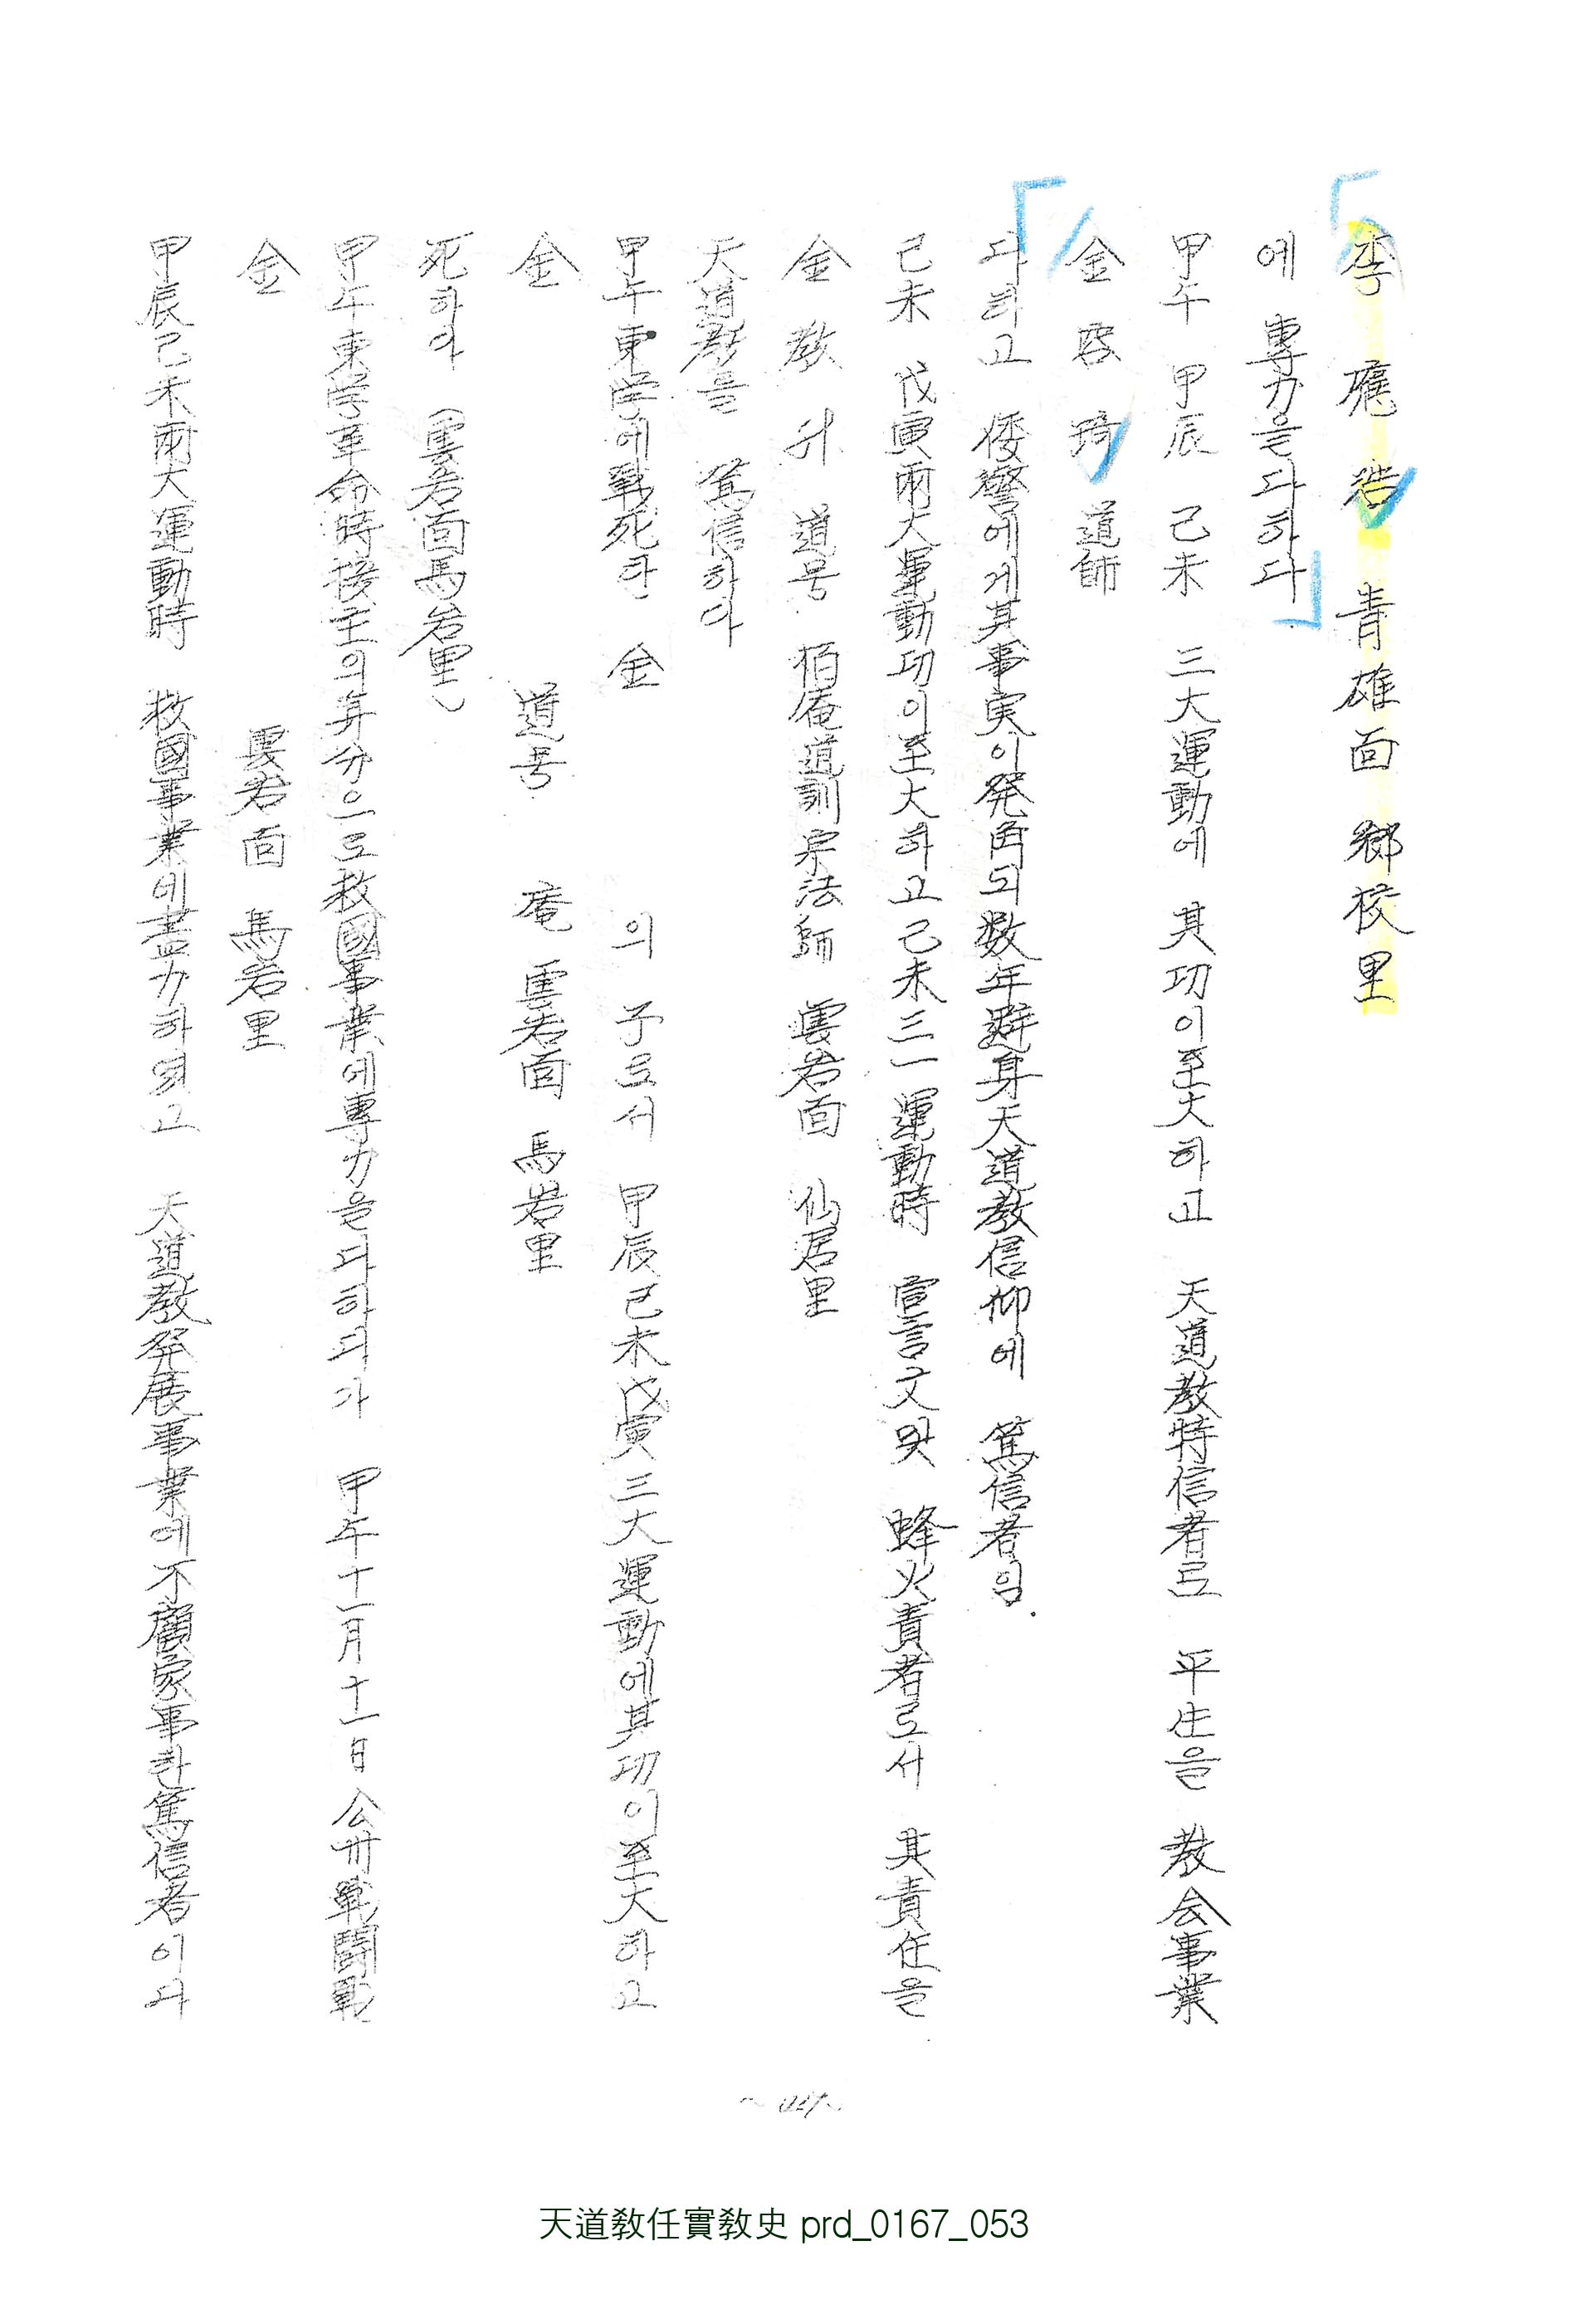 甲辰己未兩大運動時 救國事業에盡力하였고 天道教発展事業에不顧家事한篤信者이다
金 雲岩面 馬岩里
甲午東学革命時接主의身分으로救國事業에專力을다하다가 甲午十一月十一日公州戰鬪戰
死하다 (雲岩面馬岩里)
金 道号 庵 雲岩面 馬岩里
甲午東学에戰死한 金 의 子로서 甲辰己未戊寅三大運動에其功이至大하고
天道教를 篤信하다
金教升 道号 栢庵道訓宗法師 雲岩面 仙居里
己未 戊寅兩大運動功이至大하고己未三一運動時 宣言文및 蜂火責者로서 其責任을
다하고 倭警에게其事実이発角되数年避身天道教信仰에 篤信者임.
金啓琦 道師
甲午 甲辰 己未 三大運動에 其功이至大하고 天道教特信者로 平生을 教会事業
에 專力을다하다
李應浩 青雄面 鄕校里
天道敎任實敎史 prd_0167_053